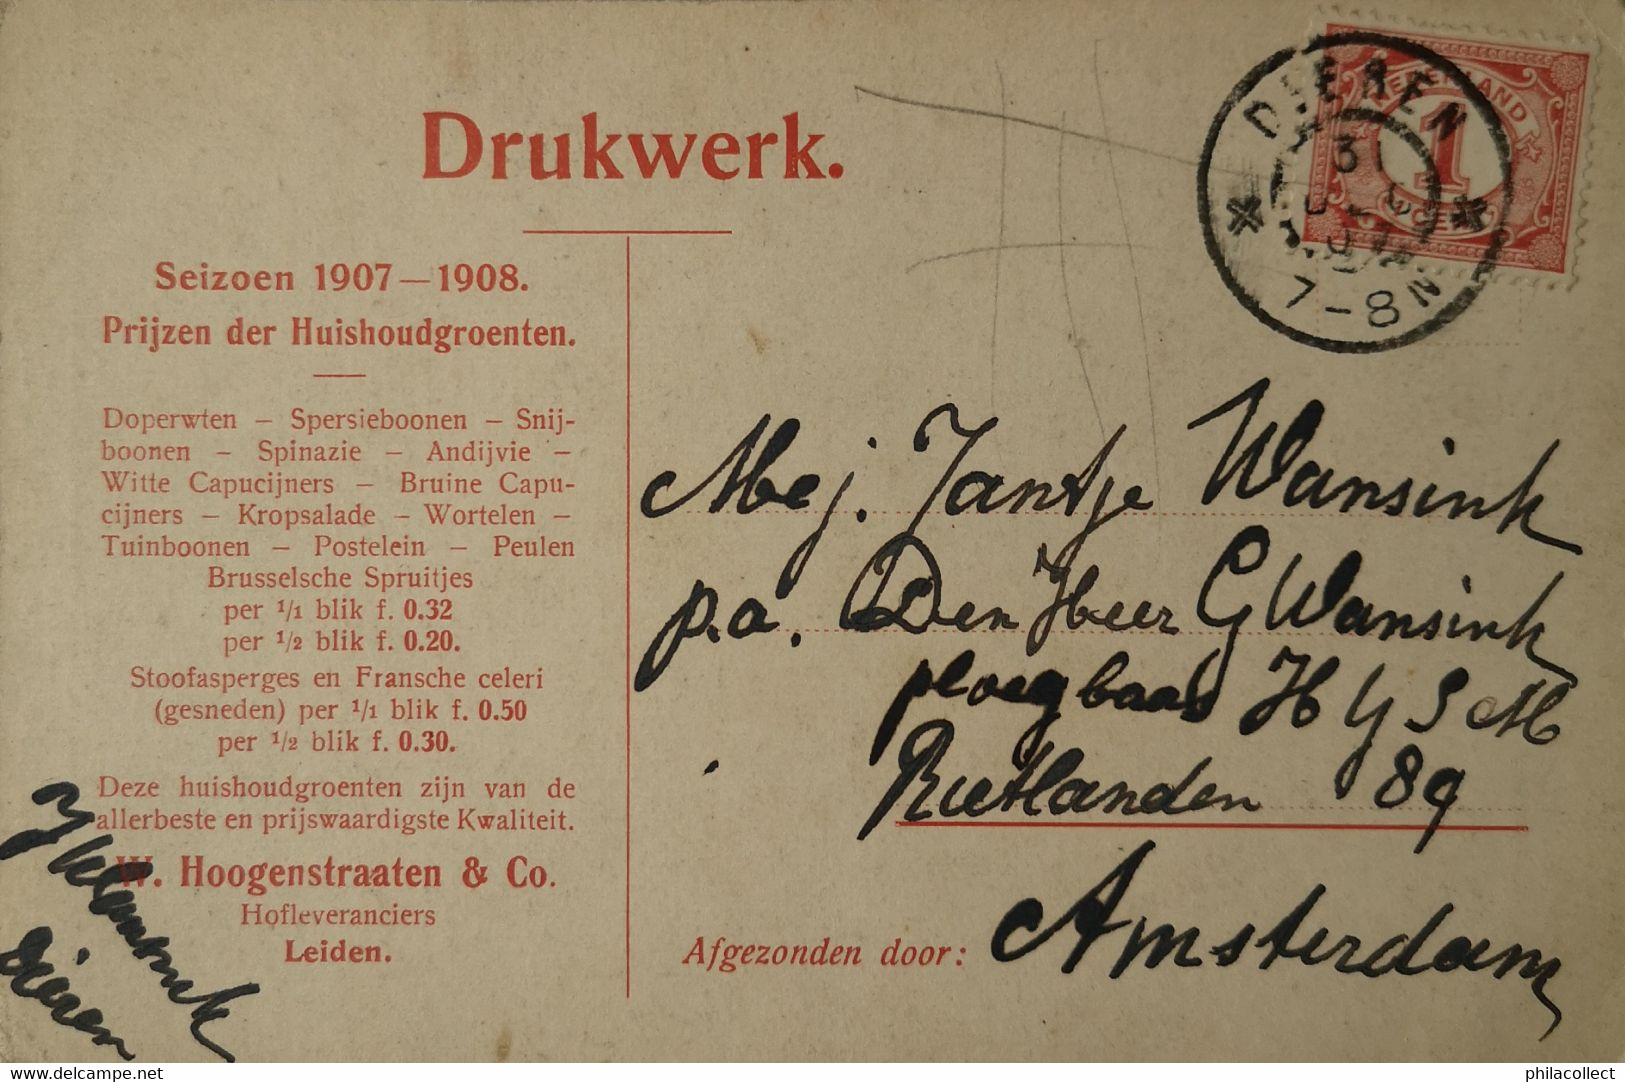 Drukwerk.
Seizoen 1907—1908.
Prijzen der Huishoudgroenten.
Doperwten — Spersieboonen — Snij-
boonen — Spinazie — Andijvie —
Witte Capucijners — Bruine Capu-
cijners — Kropsalade — Wortelen —
Tuinboonen — Postelein — Peulen
Brusselsche Spruitjes
per 1/1 blik f. 0.32
per 1/2 blik f. 0.20.
Stoofasperges en Fransche celeri
(gesneden) per 1/1 blik f. 0.50
per 1/2 blik f. 0.30.
Deze huishoudgroenten zijn van de
allerbeste en prijswaardigste Kwaliteit.
W. Hoogenstraaten & Co.
Hofleveranciers
Leiden.
Dieren
NEDERLAND
1
DIEREN
31
7-8 N
Mej. Jantje Wansink
p.a. Den Heer G Wansink
ploegbaas H Y S M
Rietlanden 89
Amsterdam
Afgezonden door:
philacollect - www.delcampe.net